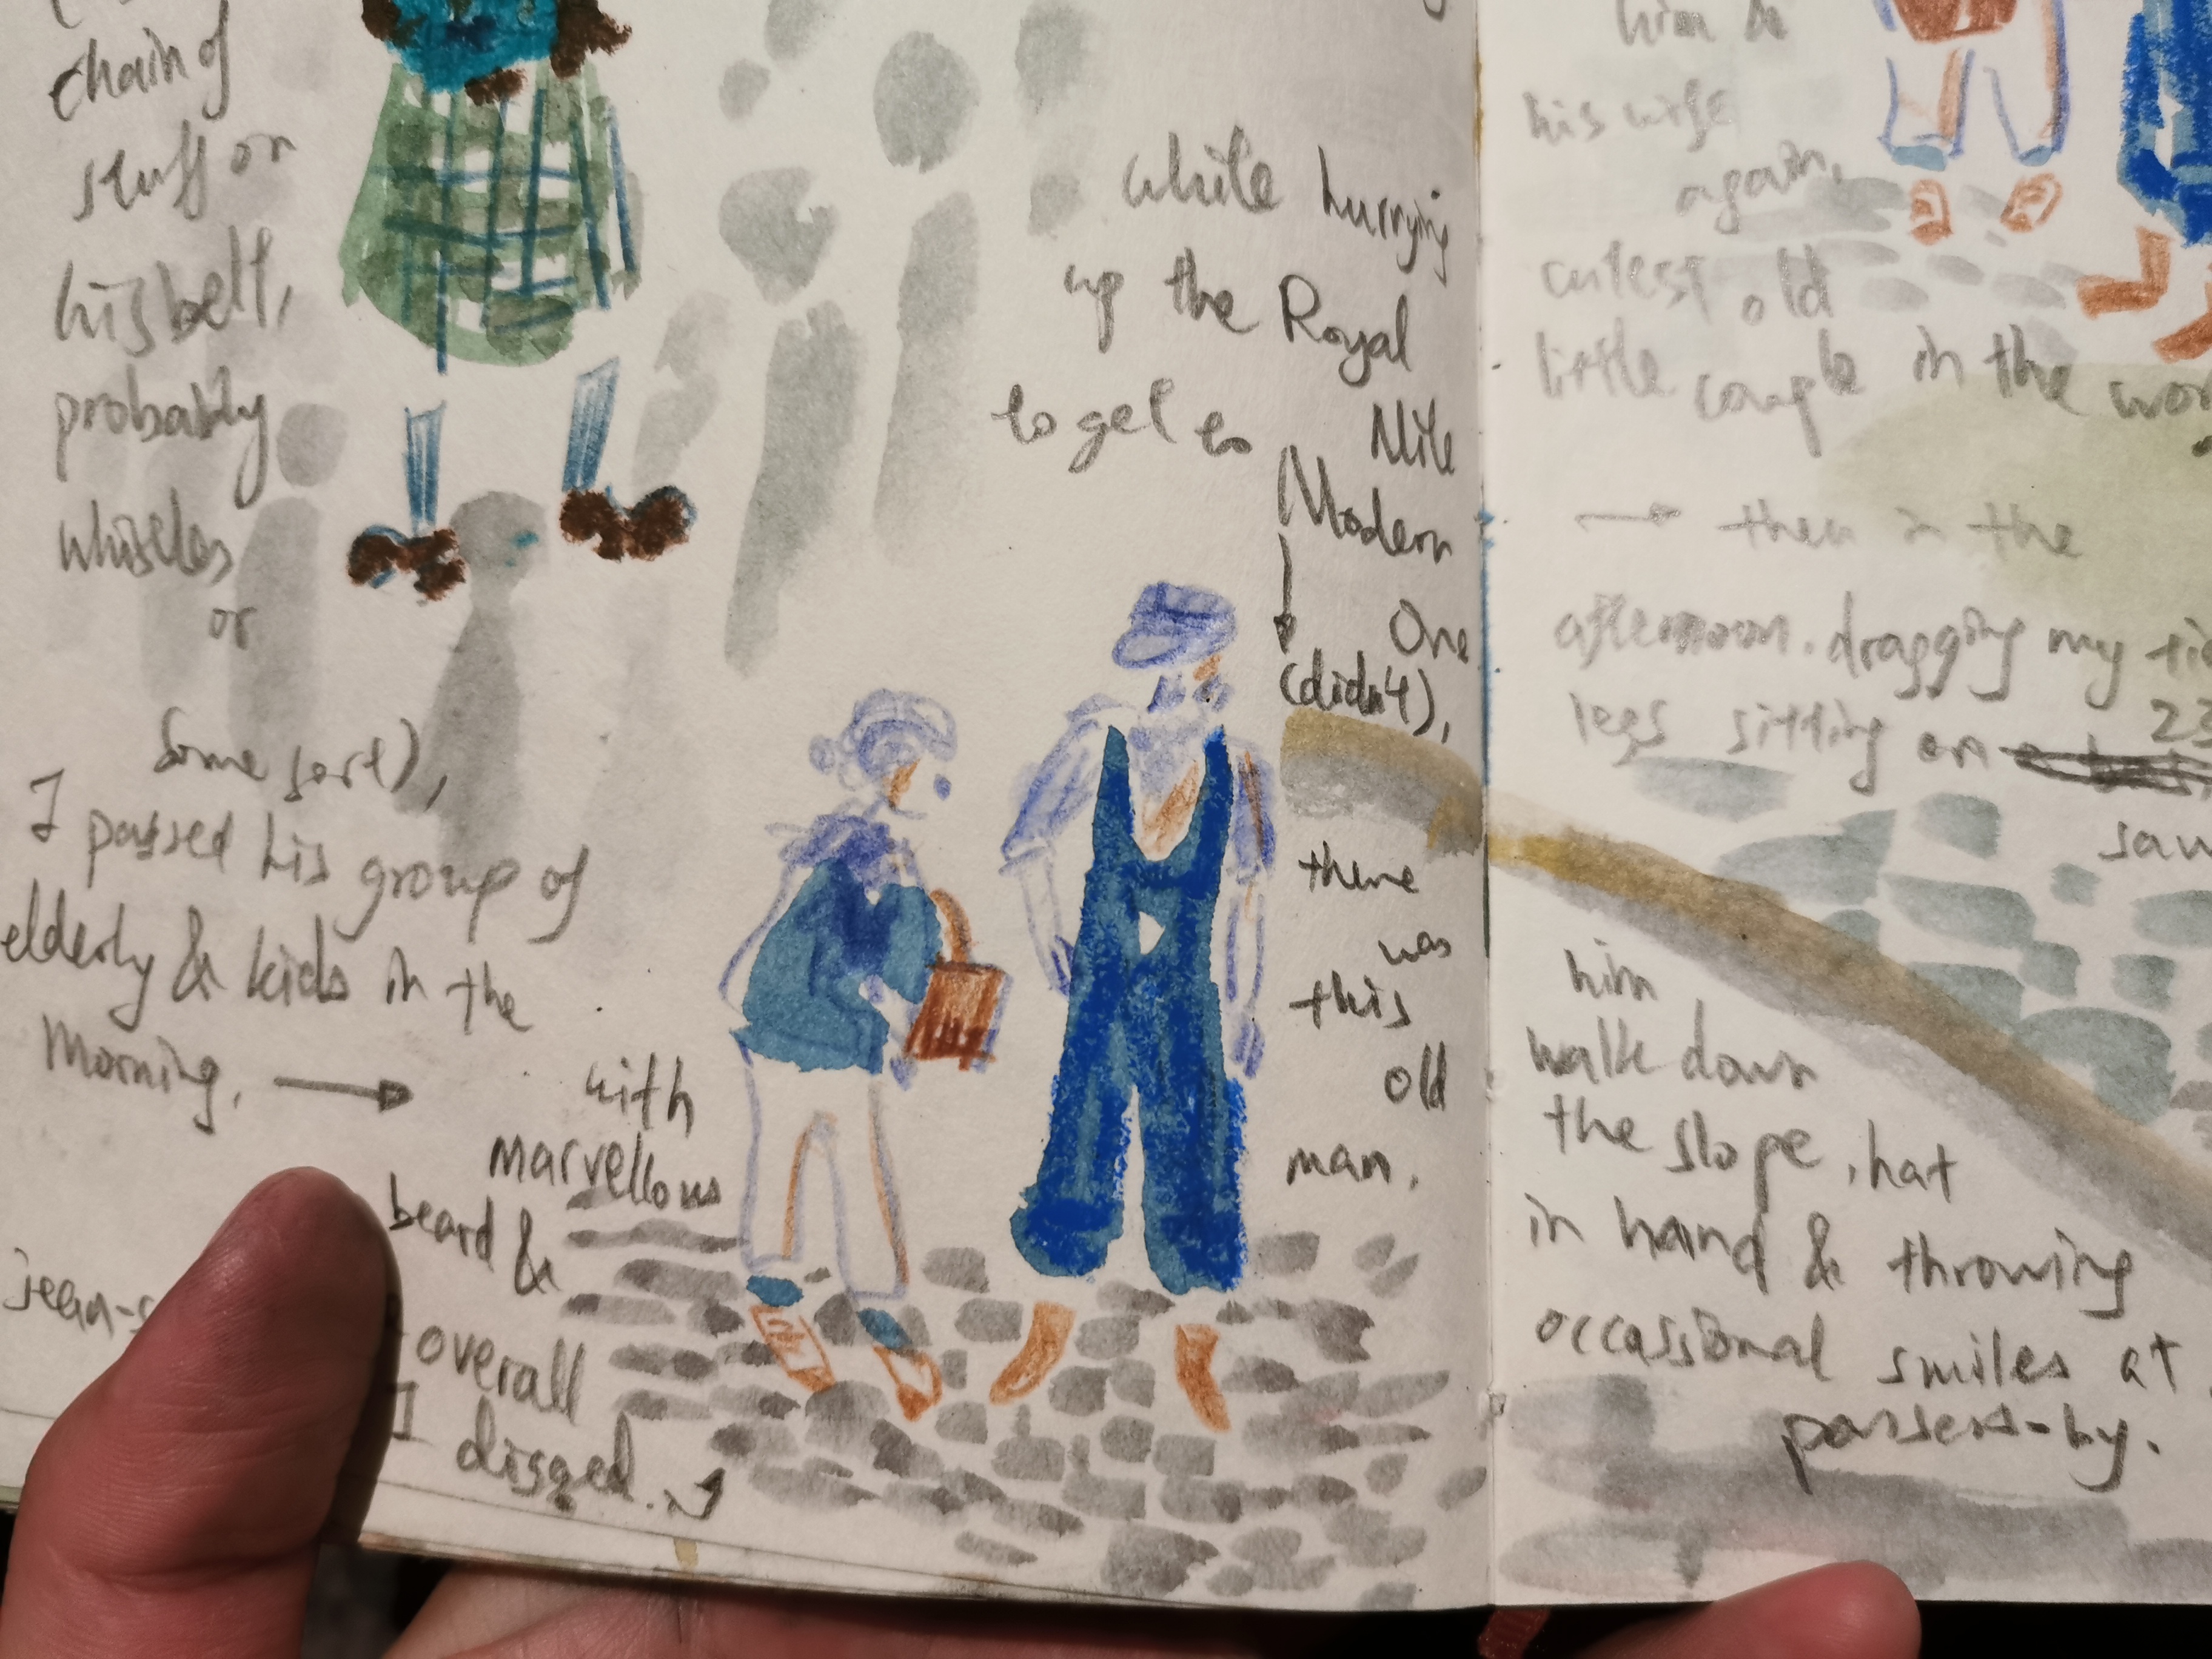 chain of
stuff on
his belt,
probably
whistles
or
some sort),
I passed his group of
elderly & kids in the
morning,
while hurrying
up the Royal
Mile
to get to
Modern
One
(didn't),
there
was
this
old
man,
with
marvellous
beard &
jean-
overall
I digged.
him &
his wife
again,
cutest old
little couple in the
then in the
afternoon. dragging my
legs sitting on
23
saw
him
walk down
the slope, hat
in hand & throwing
occassional smiles at
passers-by.